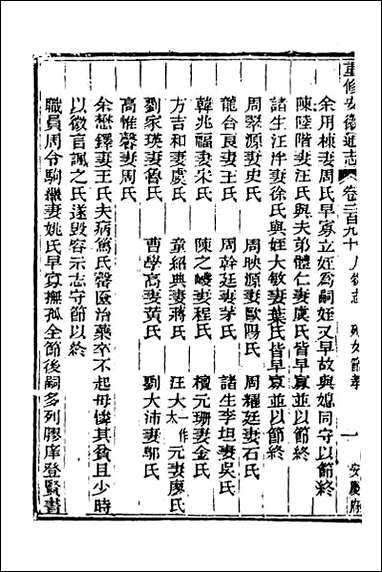 重修安徽通志 卷二百九十 人物志 列女節孝 一 安慶府
余用楝妻周氏早寡立姪為嗣姪又早故與媳同守以節終
陳陞階妻汪氏與夫弟體仁妻虞氏皆早寡並以節終
諸生汪泮妻徐氏與姪大敏妻葉氏皆早寡並以節終
周翠源妻史氏 周映源妻歐陽氏 周耀廷妻石氏
龍台良妻王氏 周幹廷妻茅氏 諸生李坦妻吳氏
韓兆福妻朱氏 陳之嶙妻程氏 檀元珊妻金氏
方吉和妻虞氏 章紹典妻蔣氏 汪大一作太元妻廖氏
劉家瑛妻魯氏 曹學高妻黃氏 劉大沛妻鄔氏
高惟馨妻周氏
余懋鐸妻王氏夫病篤氏罄匳治藥卒不起母憐其貧且少時
以微言諷之氏遂毀容示志守節以終
職員周令駒繼妻姚氏早寡撫孤全節後嗣多列膠庠登賢書